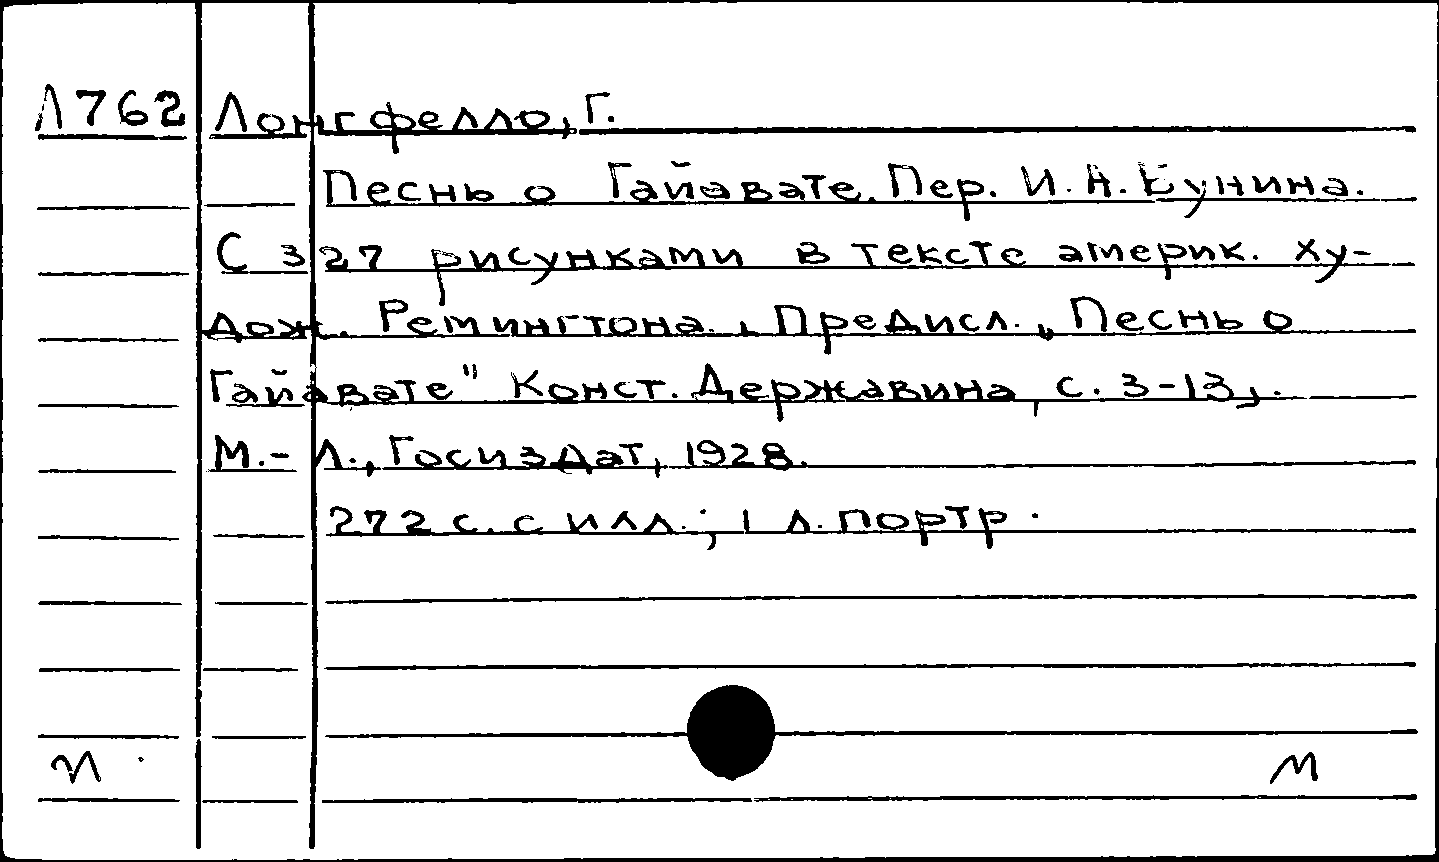 Л762 Лонгфелло, Г.
Песнь о Гайавате. Пер. И. А. Бунина.
С 327 рисунками в тексте америк. ху-
дож. Ремингтона. , Предисл. „Песнь о
Гайавате" Конст. Державина, с. 3-13,.
М.-Л., Госиздат, 1928.
272 с. с илл.; 1 л. портр.
М